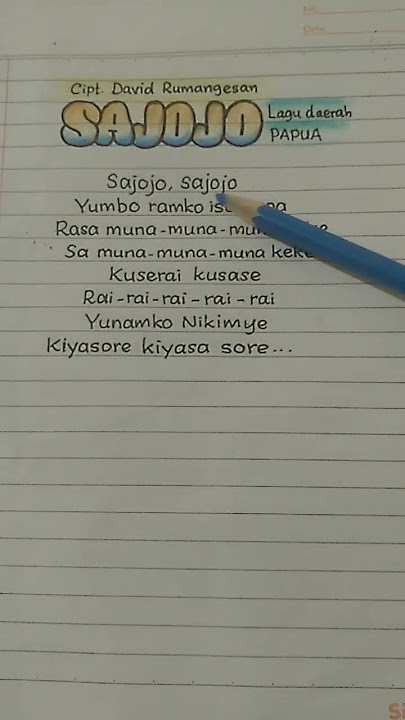 No:
Date:
Cipt. David Rumangesan
SAJOJO
Lagu daerah
PAPUA
Sajojo, sajojo
Yumbo ramko
Rasa muna-muna-
Sa muna-muna-muna
Kuserai kusase
Rai-rai-rai-rai-rai
Yunamko Nikimye
Kiyasore kiyasa sore...